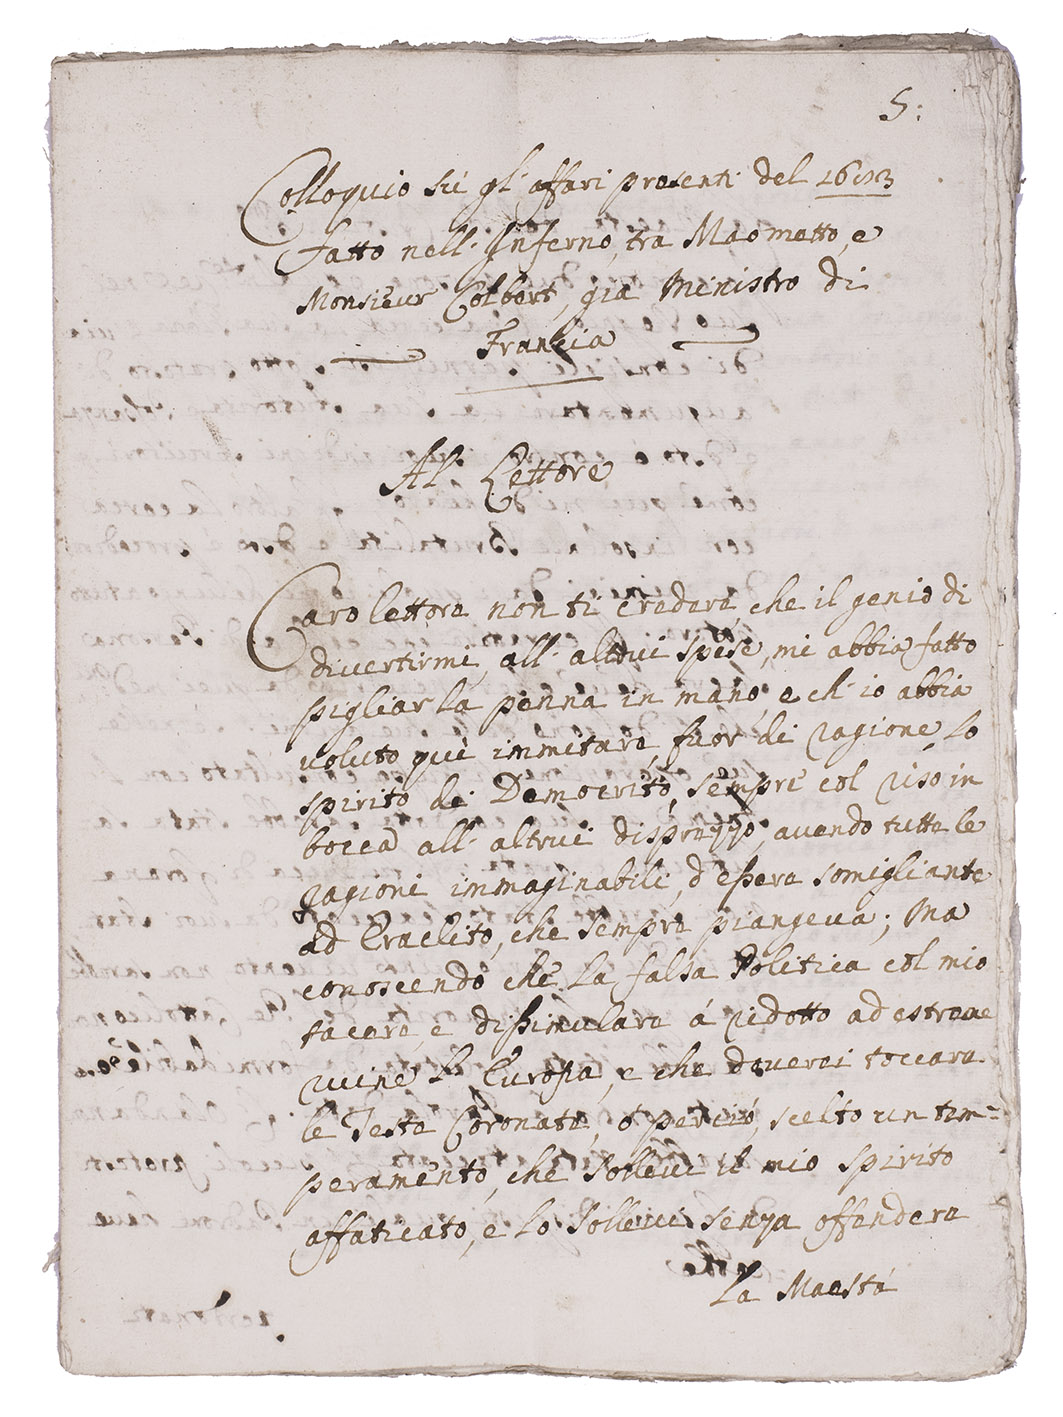 5:
Colloquio sù gl' affari presenti del 1683
fatto nell' Inferno, tra Maometto, e
Monsieur Colbert, già Ministro di
Francia
Al Lettore
Caro lettore non ti credere, che il genio di
divertirmi, all' altrui spese, mi abbia fatto
pigliar la penna in mano, e ch' io abbia
voluto quì immitare, fuor di ragione, lo
spirito di Democrito, sempre col riso in
bocca all' altrui disprezzo, avendo tutte le
ragioni immaginabili, d'essere somigliante
ad Eraclito, che sempre piangeva; Ma
conoscendo che la falsa Politica col mio
tacere, e dissimulare à ridotto ad estreme
ruine l' Europa, e che doverei toccare
le Teste Coronate, ò perciò, scelto un tem=
peramento, che sollevi il mio spirito
affaticato, e lo sollevi senza offendere
la Maestà